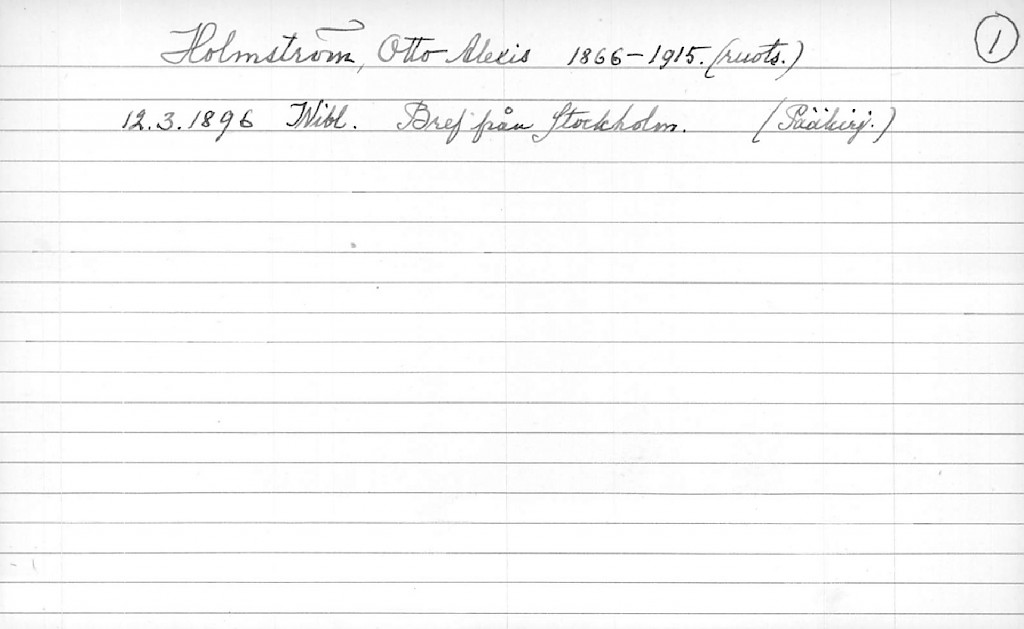 Holmström, Otto Alexis 1866-1915. (ruots.) 1
12.3.1896 Wibl. Bref från Stockholm. (Pääkirj.)